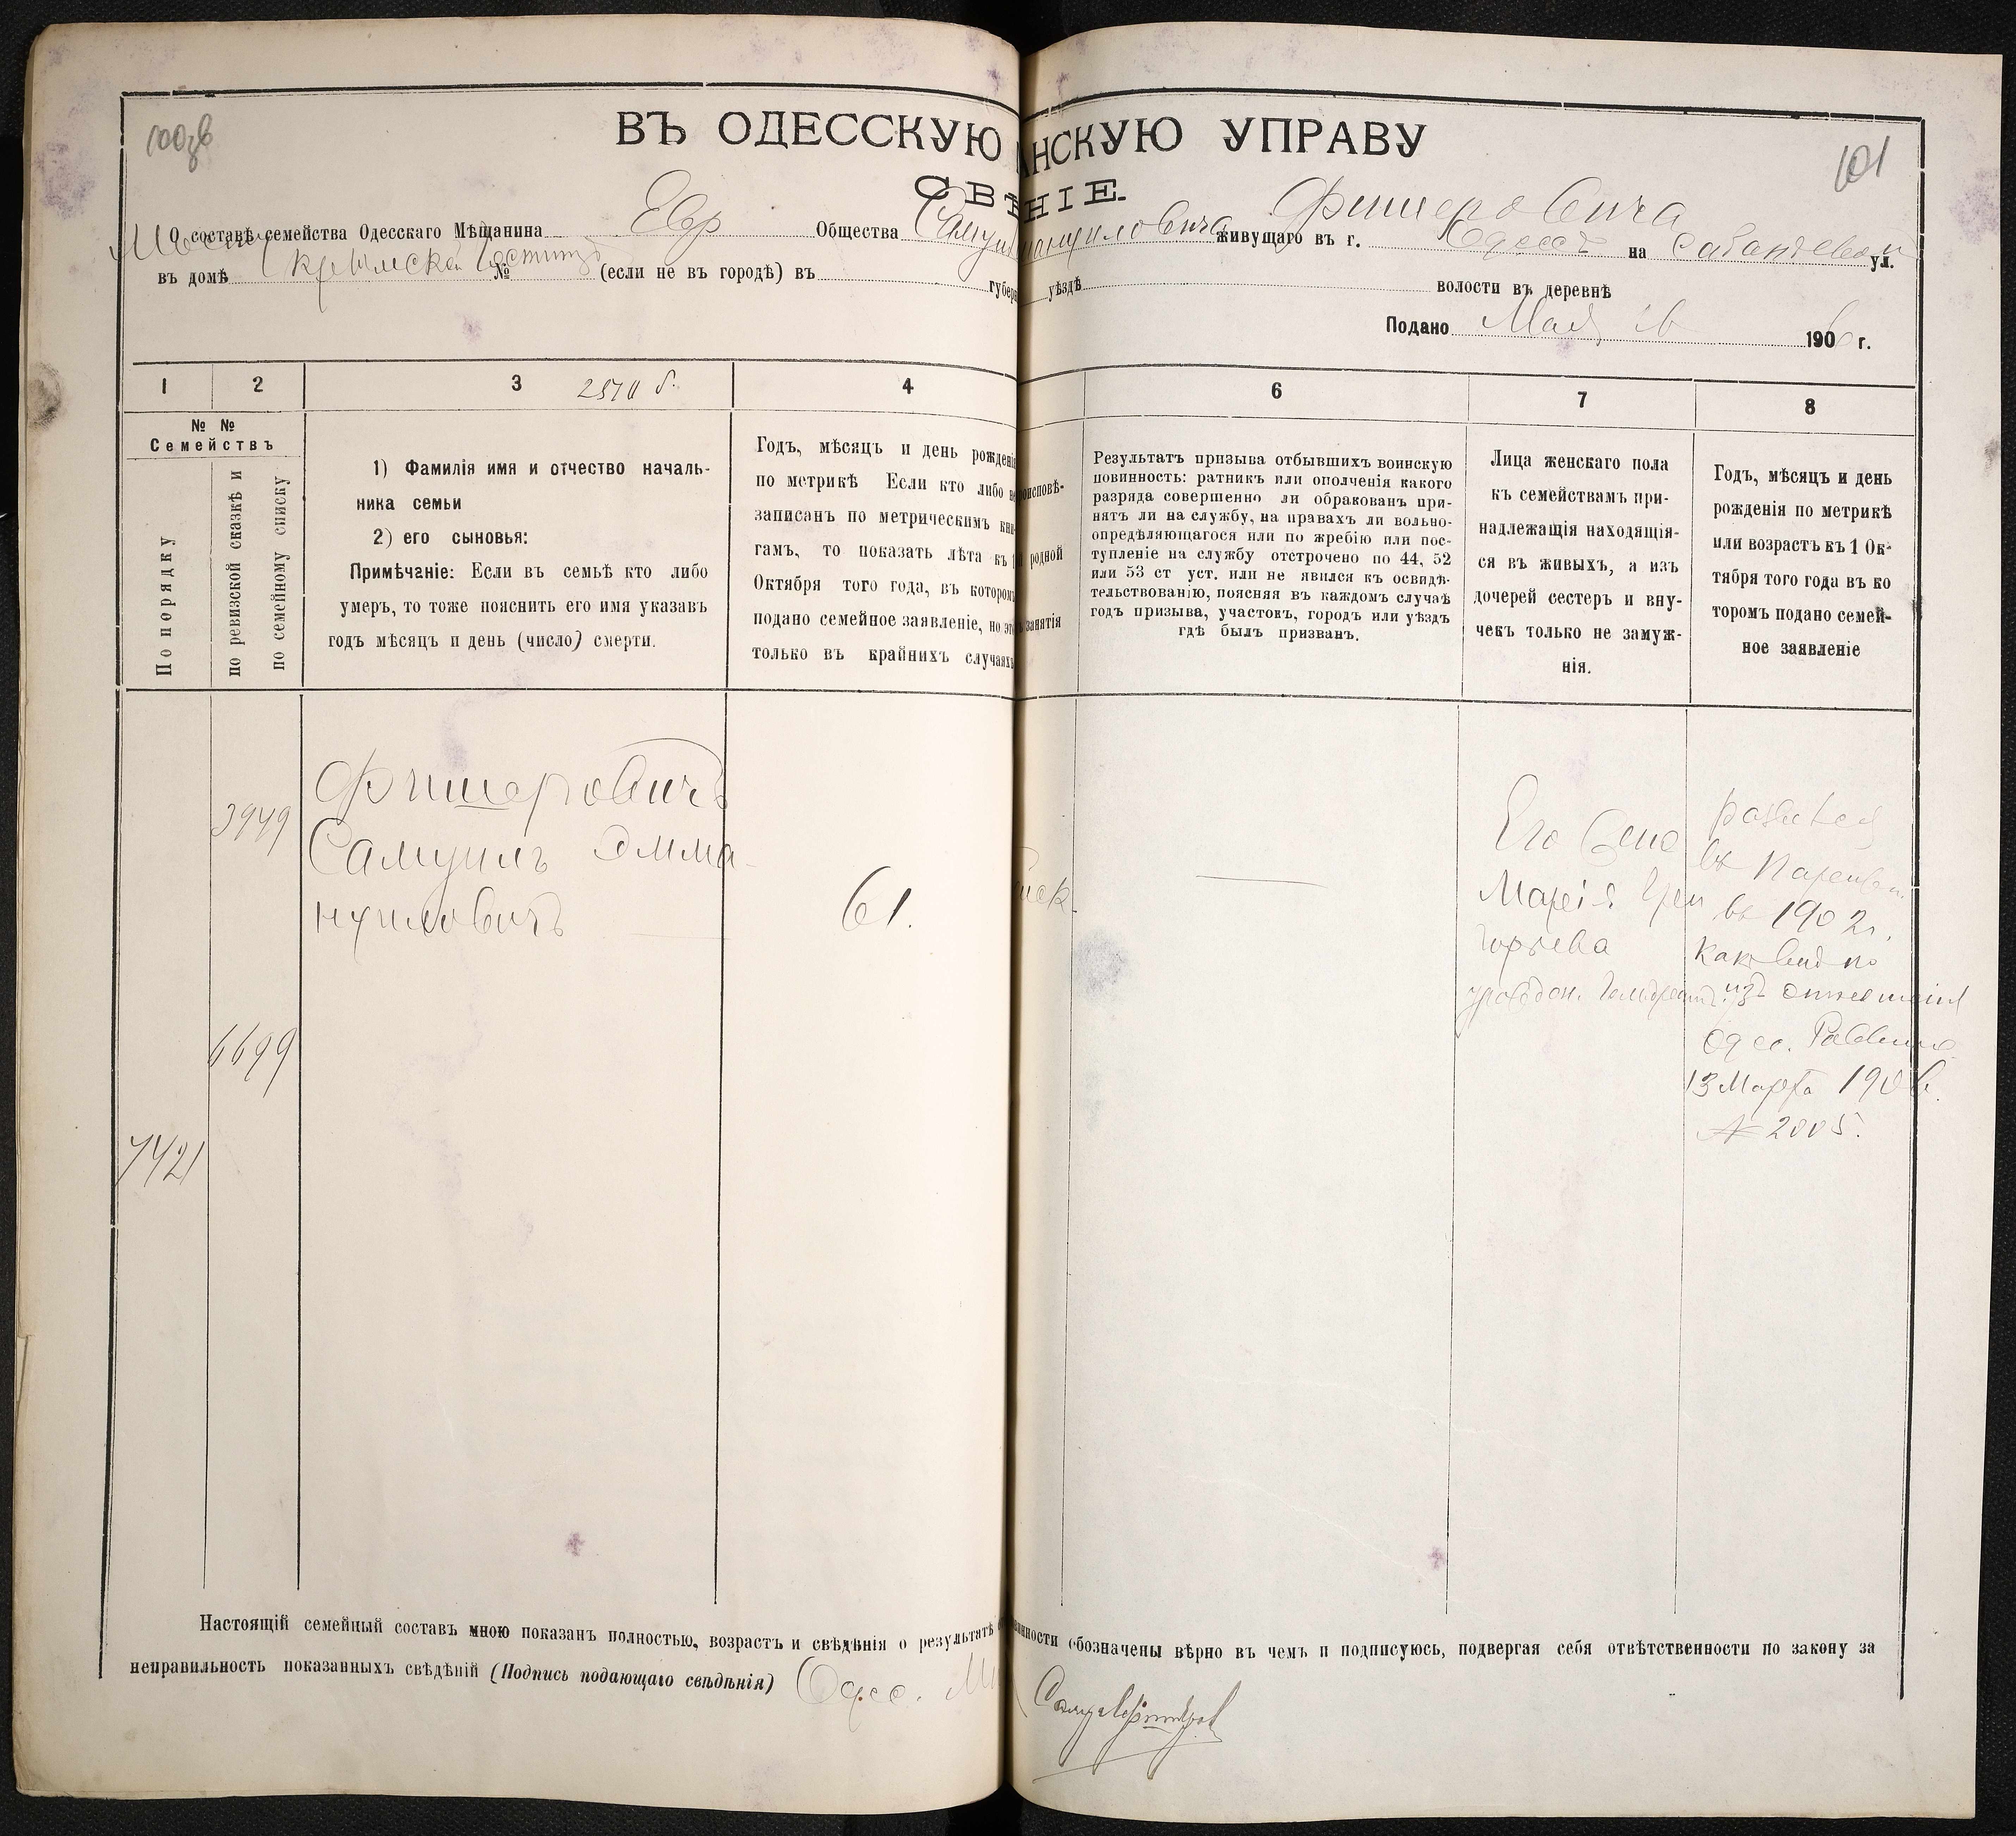 100зв
101
ВЪ ОДЕССКУЮ НСКУЮ УПРАВУ
СВѢ НІЕ.
О составѣ семейства Одесскаго Мѣщанина Евр Общества Самуи мануиловича Фишеровича живущаго въ г. Одессѣ на ул.
въ домѣ Крымская № (если не въ городѣ) въ губер уѣздѣ волости въ деревнѣ
Подано Мая 190 г.
1 2 3 4 6 7 8
№ №
Семействъ
По порядку
по ревизской сказкѣ и
по семейному списку
1) Фамилія имя и отчество началь-
ника семьи
2) его сыновья:
Примѣчаніе: Если въ семьѣ кто либо
умеръ, то тоже пояснить его имя указавъ
годъ мѣсяцъ и день (число) смерти.
Годъ, мѣсяцъ и день рожденія
по метрикѣ Если кто либо не
записанъ по метрическимъ кни-
гамъ, то показать лѣта къ 1
Октября того года, въ которомъ
подано семейное заявленіе, но это
только въ крайнихъ случаяхъ
оисповѣ-
родной
занятія
Результатъ призыва отбывшихъ воинскую
повинность: ратникъ или ополченія какого
разряда совершенно ли обракованъ при-
нятъ ли на службу, на правахъ ли вольно-
опредѣляющагося или по жребію или пос-
тупленіе на службу отстрочено по 44, 52
или 53 ст уст. или не явился къ освидѣ-
тельствованію, поясняя въ каждомъ случаѣ
годъ призыва, участовъ, городъ или уѣздъ
гдѣ былъ призванъ.
Лица женскаго пола
къ семействамъ при-
надлежащія находящія-
ся въ живыхъ, а изъ
дочерей сестеръ и вну-
чекъ только не замуж-
нія.
Годъ, мѣсяцъ и день
рожденія по метрикѣ
или возрастъ къ 1 Ок-
тября того года въ ко
торомъ подано семей-
ное заявленіе
3949
6699
7421
Фишеровичъ
Самуилъ Эмма-
нуиловичъ
61.
Его жена
Марія Гри
горьева
въ 1902 г.
какъ видно
изъ отношенія
Одес. Раввина
13 Марта 1906.
№ 2005.
Настоящій семейный составъ мною показанъ полностью, возрастъ и свѣдѣнія о результатѣ инности обозначены вѣрно въ чемъ и подписуюсь, подвергая себя отвѣтственности по закону за
неправильность показанныхъ свѣдѣній (Подпись подающаго свѣдѣнія) Одес.